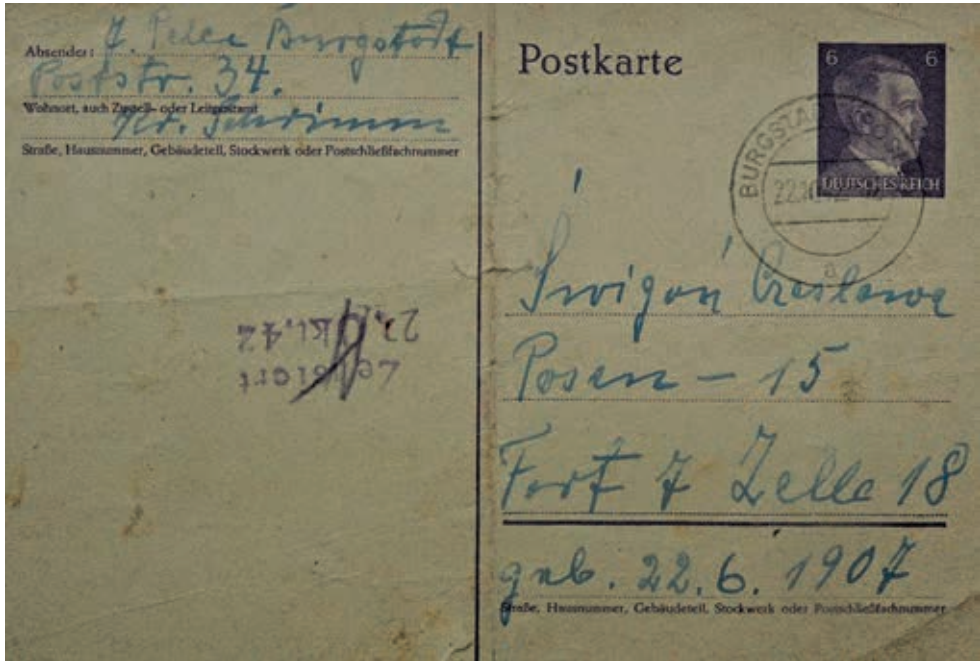 Absender: Burgstadt
Poststr. 34.
Wohnort, auch Zustell- oder Leitpostamt
Kr. Schrimm
Straße, Hausnummer, Gebäudeteil, Stockwerk oder Postschließfachnummer
Postkarte
6 6
DEUTSCHES REICH
a
Świgoń Czesława
Posen - 15
Fort 7 Zelle 18
geb. 22.6.1907
Straße, Hausnummer, Gebäudeteil, Stockwerk oder Postschließfachnummer